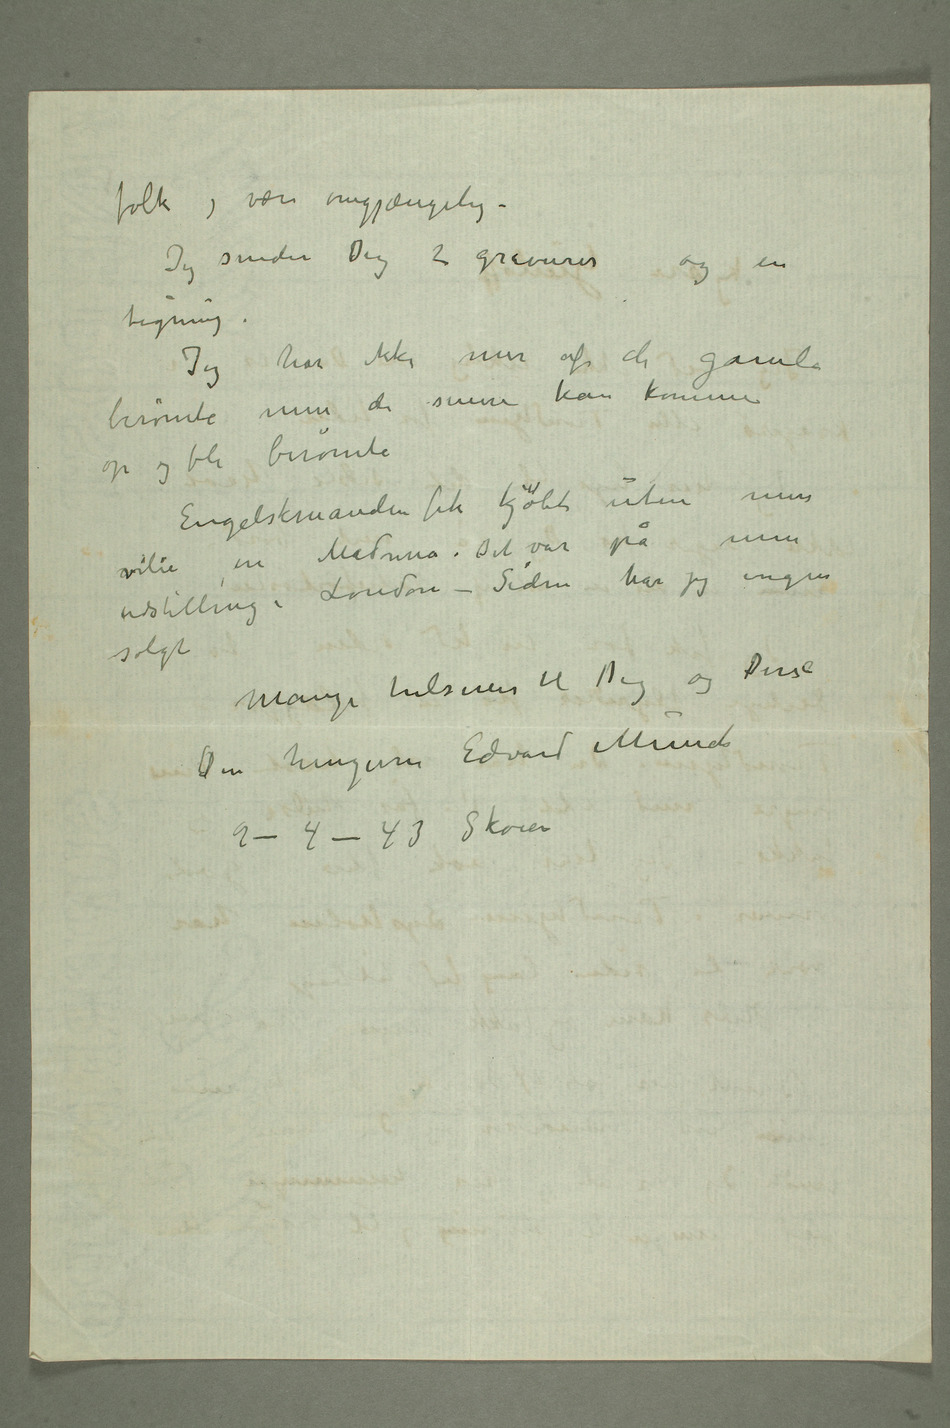 folk og være omgjængelig –
Jeg sender Dig 2 gravurer og en
tegning.
Jeg har ikke mer af de gamle
berømte men de senere kan komme
op og bli berømte
Engelskmanden fik kjøbt uten min
vilie en Madonna. Det var på min
udstilling i London – Siden har jeg ingen
solgt
Mange hilsener til Dig og Dine
Din hengivne Edvard Munch
9 – 4 – 43 Skøien